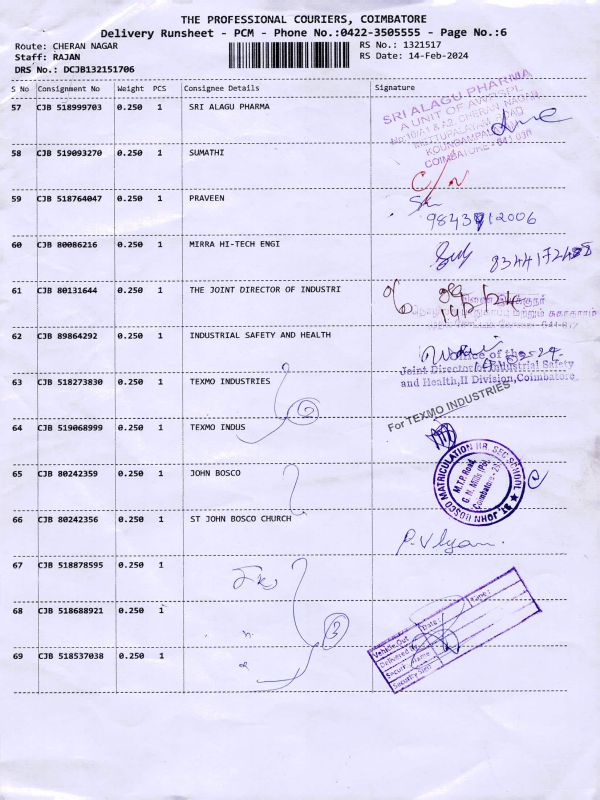 THE PROFESSIONAL COURIERS, COIMBATORE
Delivery Runsheet - PCM - Phone No.:0422-3505555 - Page No.:6
Route: CHERAN NAGAR RS No.: 1321517
Staff: RAJAN RS Date: 14-Feb-2024
DRS No.: DCJB132151706
S No Consignment No Weight PCS Consignee Details Signature
57 CJB 518999703 0.250 1 SRI ALAGU PHARMA
SRI ALAGU PHARMA
A UNIT OF
CHERAN NAGAR,
COIMBATORE - 641 030
58 CJB 519093270 0.250 1 SUMATHI
C/N
59 CJB 518764047 0.250 1 PRAVEEN
60 CJB 80086216 0.250 1 MIRRA HI-TECH ENGI
61 CJB 80131644 0.250 1 THE JOINT DIRECTOR OF INDUSTRI
62 CJB 89864292 0.250 1 INDUSTRIAL SAFETY AND HEALTH
Office of the
Joint Director Industrial Safety
and Health,II Division,Coimbatore
63 CJB 518273830 0.250 1 TEXMO INDUSTRIES
2
For TEXMO INDUSTRIES
64 CJB 519068999 0.250 1 TEXMO INDUS
65 CJB 80242359 0.250 1 JOHN BOSCO
ST. JOHN BOSCO MATRICULATION HR. SEC SCHOOL
M.T.P. Road,
G. N. Mills (Po),
Coimbatore - 29.
66 CJB 80242356 0.250 1 ST JOHN BOSCO CHURCH
67 CJB 518878595 0.250 1
68 CJB 518688921 0.250 1
3
Vehicle Out
Date:
Time:
Delivered
Security Name
Security Sign
69 CJB 518537038 0.250 1